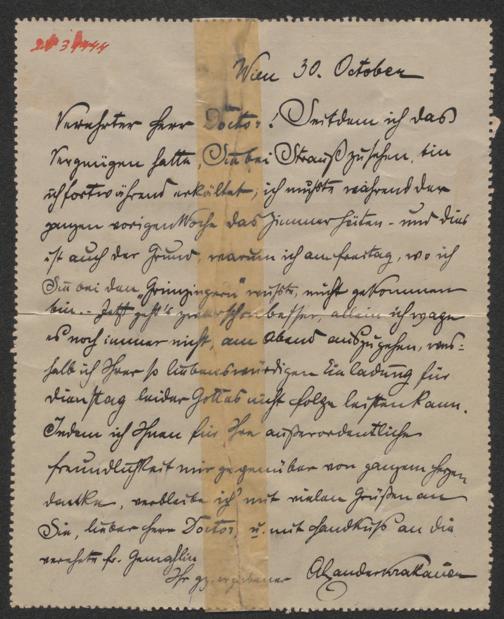 Wien 30. October
Verehrter Herr Doctor! Seitdem ich das
Vergnügen hatte, Sie bei Strauß zu sehen, bin
ich fortwährend erkältet; ich mußte während der
ganzen vorigen Woche das Zimmer hüten - und dies
ist auch der Grund, warum ich am Freitag, wo ich
Sie bei den "Grinzingern" wußte, nicht gekommen
bin.- Jetzt geht's zwar schon besser, allein ich wage
es noch immer nicht, am Abend auszugehen, wes=
halb ich Ihrer so liebenswürdigen Einladung für
Dienstag leider Gottes nicht folge leisten kann.
Indem ich Ihnen für Ihre außerordentliche
Freundlichkeit mir gegenüber von ganzem Herzen
danke, verbleibe ich mit vielen Grüßen an
Sie, lieber Herr Doctor, u. mit Handkuß an die
verehrte Fr. Gemahlin
Ihr gz. ergebener Alexander Krakauer